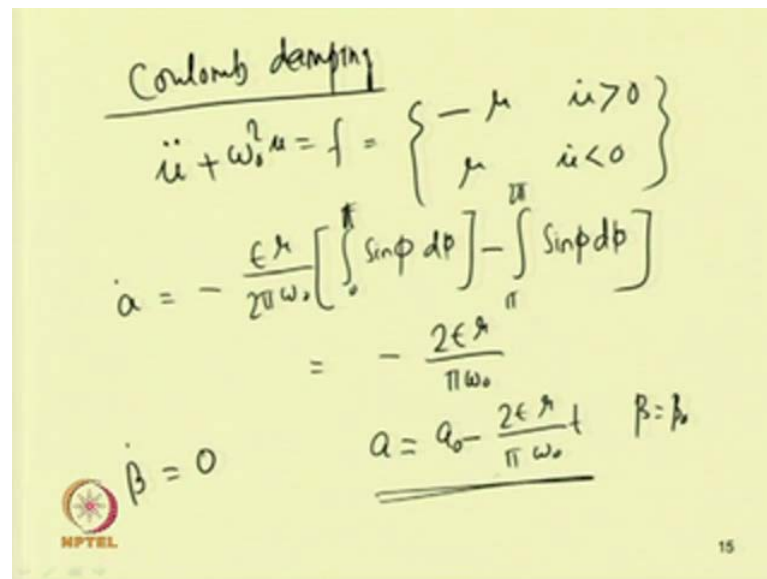 Coulomb damping
ü + ω₀² u = f = { − μ   u̇ > 0
μ   u̇ < 0 }
ȧ = − εμ / 2πω₀ [ ∫₀^π sin φ dφ ] − ∫_π^2π sin φ dφ ]
= − 2εμ / πω₀
β̇ = 0   a = a₀ − 2εμ / π ω₀ t   β = β₀
NPTEL
15